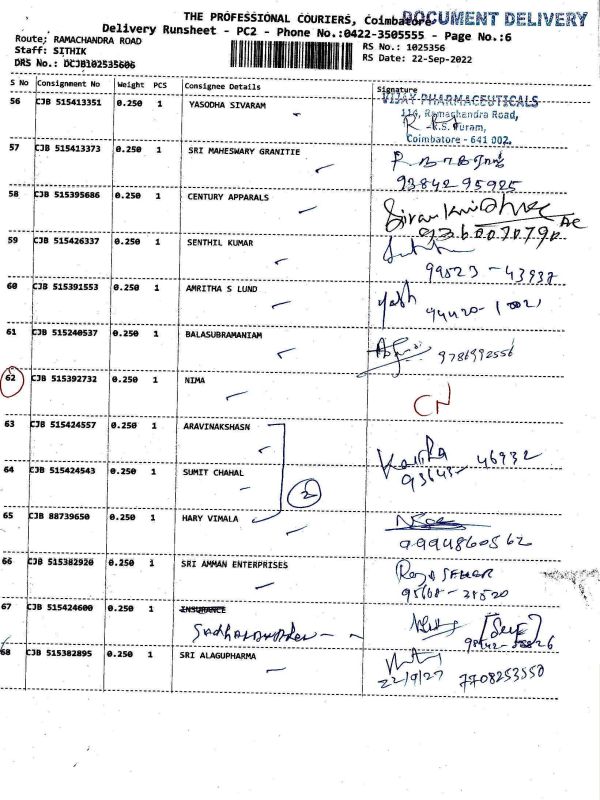 THE PROFESSIONAL COURIERS, Coimbatore DOCUMENT DELIVERY
Delivery Runsheet - PC2 - Phone No.:0422-3505555 - Page No.:6
Route: RAMACHANDRA ROAD
Staff: SITHIK
DRS No.: DCJB102535606
RS No.: 1025356
RS Date: 22-Sep-2022
S No Consignment No Weight PCS Consignee Details Signature
56 CJB 515413351 0.250 1 YASODHA SIVARAM
VIJAY PHARMACEUTICALS
114, Ramachandra Road,
R.S. Puram,
Coimbatore - 641 002.
57 CJB 515413373 0.250 1 SRI MAHESWARY GRANITIE
93842 95925
58 CJB 515395686 0.250 1 CENTURY APPARALS
59 CJB 515426337 0.250 1 SENTHIL KUMAR
99523 - 43938
60 CJB 515391553 0.250 1 AMRITHA S LUND
yash
61 CJB 515240537 0.250 1 BALASUBRAMANIAM
9786992556
62 CJB 515392732 0.250 1 NIMA CN
63 CJB 515424557 0.250 1 ARAVINAKSHASN
93643- 46932
64 CJB 515424543 0.250 1 SUMIT CHAHAL
2
65 CJB 88739650 0.250 1 HARY VIMALA
9994860562
66 CJB 515382920 0.250 1 SRI AMMAN ENTERPRISES
67 CJB 515424600 0.250 1 INSURANCE
68 CJB 515382895 0.250 1 SRI ALAGUPHARMA
22/9/22 7708253550